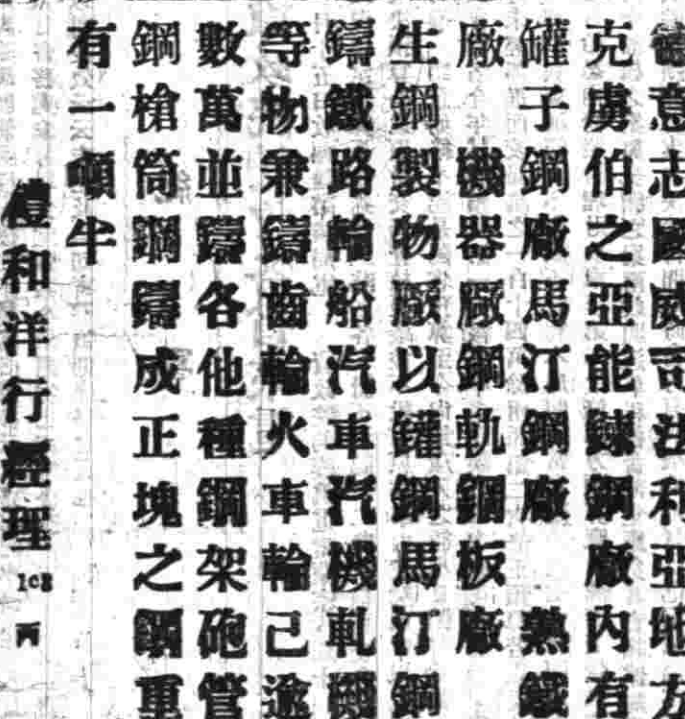 德意志國威司法利亞地方
克虜伯之亞能鍊鋼廠內有
罐子鋼廠馬汀鋼廠 熟鐵
廠 機器廠鋼軌鋼板廠
生鋼製物廠以鑵鋼馬汀鋼
鑄鐵路輪船汽車汽機軋
等物兼鑄齒輪火車輪己逾
數萬並鑄各他種鋼架砲管
鋼槍筒鋼鑄成正塊之鋼重
有一頓牛
禮和洋行經理